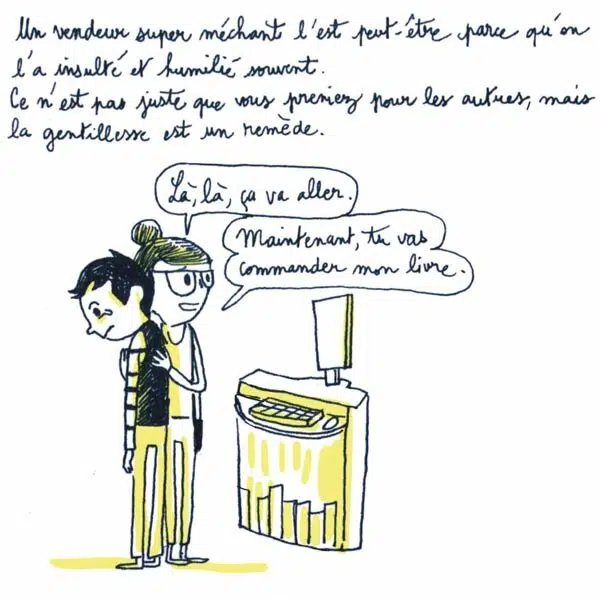 Un vendeur super méchant l'est peut-être parce qu'on
l'a insulté et humilié souvent.
Ce n'est pas juste que vous preniez pour les autres, mais
la gentillesse est un remède.
Là, là, ça va aller.
Maintenant, tu vas
commander mon livre.